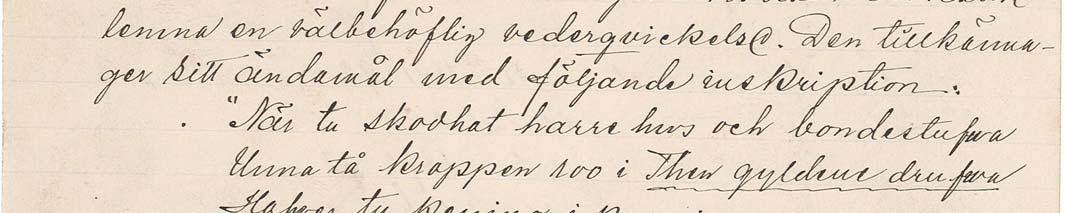 lemna en välbehöflig vedergvickelse. Den tillkänna-
ger sitt ändamål med följande inskription:
"När tu skodhat harre hws och bondestufwa
Unna tå kroppen roo i Then gyldene drufwa
tu i